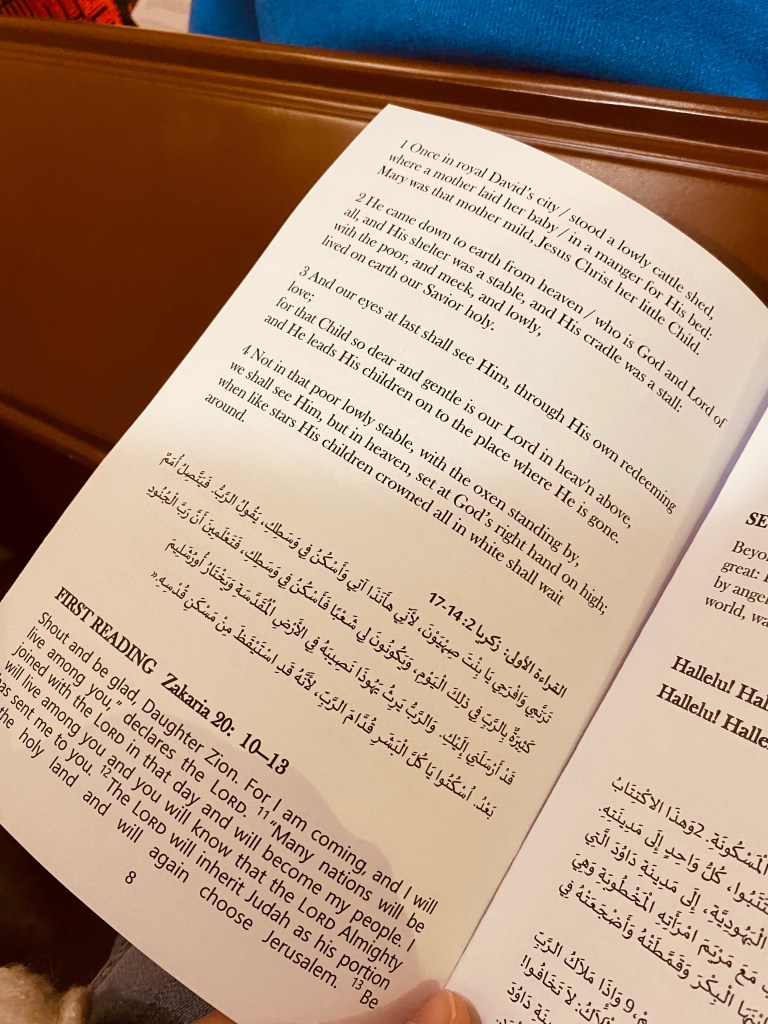 1 Once in royal David's city / stood a lowly cattle shed,
where a mother laid her baby / in a manger for His bed:
Mary was that mother mild, Jesus Christ her little Child.
2 He came down to earth from heaven / who is God and Lord of
all, and His shelter was a stable, and His cradle was a stall:
with the poor, and meek, and lowly,
lived on earth our Savior holy.
3 And our eyes at last shall see Him, through His own redeeming
love;
for that Child so dear and gentle is our Lord in heav'n above,
and He leads His children on to the place where He is gone.
4 Not in that poor lowly stable, with the oxen standing by,
we shall see Him, but in heaven, set at God's right hand on high;
when like stars His children crowned all in white shall wait
around.
القراءة الأولى: زكريا 2:14-17
تَرَنَّمِي وَافْرَحِي يَا بِنْتَ صِهْيَوْنَ، لأَنِّي هأَنَذَا آتِي وَأَسْكُنُ فِي وَسَطِكِ، يَقُولُ الرَّبُّ. فَيَتَّصِلُ أُمَمٌ
كَثِيرَةٌ بِالرَّبِّ فِي ذلِكَ الْيَوْمِ، وَيَكُونُونَ لِي شَعْبًا فَأَسْكُنُ فِي وَسَطِكِ، فَتَعْلَمِينَ أَنَّ رَبَّ الْجُنُودِ
قَدْ أَرْسَلَنِي إِلَيْكِ. وَالرَّبُّ يَرِثُ يَهُوذَا نَصِيبَهُ فِي الأَرْضِ الْمُقَدَّسَةِ وَيَخْتَارُ أُورُشَلِيمَ
بَعْدُ. اُسْكُتُوا يَا كُلَّ الْبَشَرِ قُدَّامَ الرَّبِّ، لأَنَّهُ قَدِ اسْتَيْقَظَ مِنْ مَسْكَنِ قُدْسِهِ.»
FIRST READING Zakaria 20: 10–13
Shout and be glad, Daughter Zion. For I am coming, and I will
live among you," declares the LORD. 11 "Many nations will be
joined with the LORD in that day and will become my people. I
will live among you and you will know that the LORD Almighty
has sent me to you. 12 The LORD will inherit Judah as his portion
the holy land and will again choose Jerusalem. 13 Be
8
SE
Beyo
great: I
by angel
world, wa
Hallelu! Hal
Hallelu! Halle
الْمَسْكُونَةِ. 2وَهذَا الاكْتِتَابُ
كُلُّ وَاحِدٍ إِلَى مَدِينَتِهِ.
الْيَهُودِيَّةِ، إِلَى مَدِينَةِ دَاوُدَ الَّتِي
مَعَ مَرْيَمَ امْرَأَتِهِ الْمَخْطُوبَةِ وَهِيَ
ابْنَهَا الْبِكْرَ وَقَمَّطَتْهُ وَأَضْجَعَتْهُ فِي
9وَإِذَا مَلاَكُ الرَّبِّ
لاَ تَخَافُوا!
دَاوُدَ